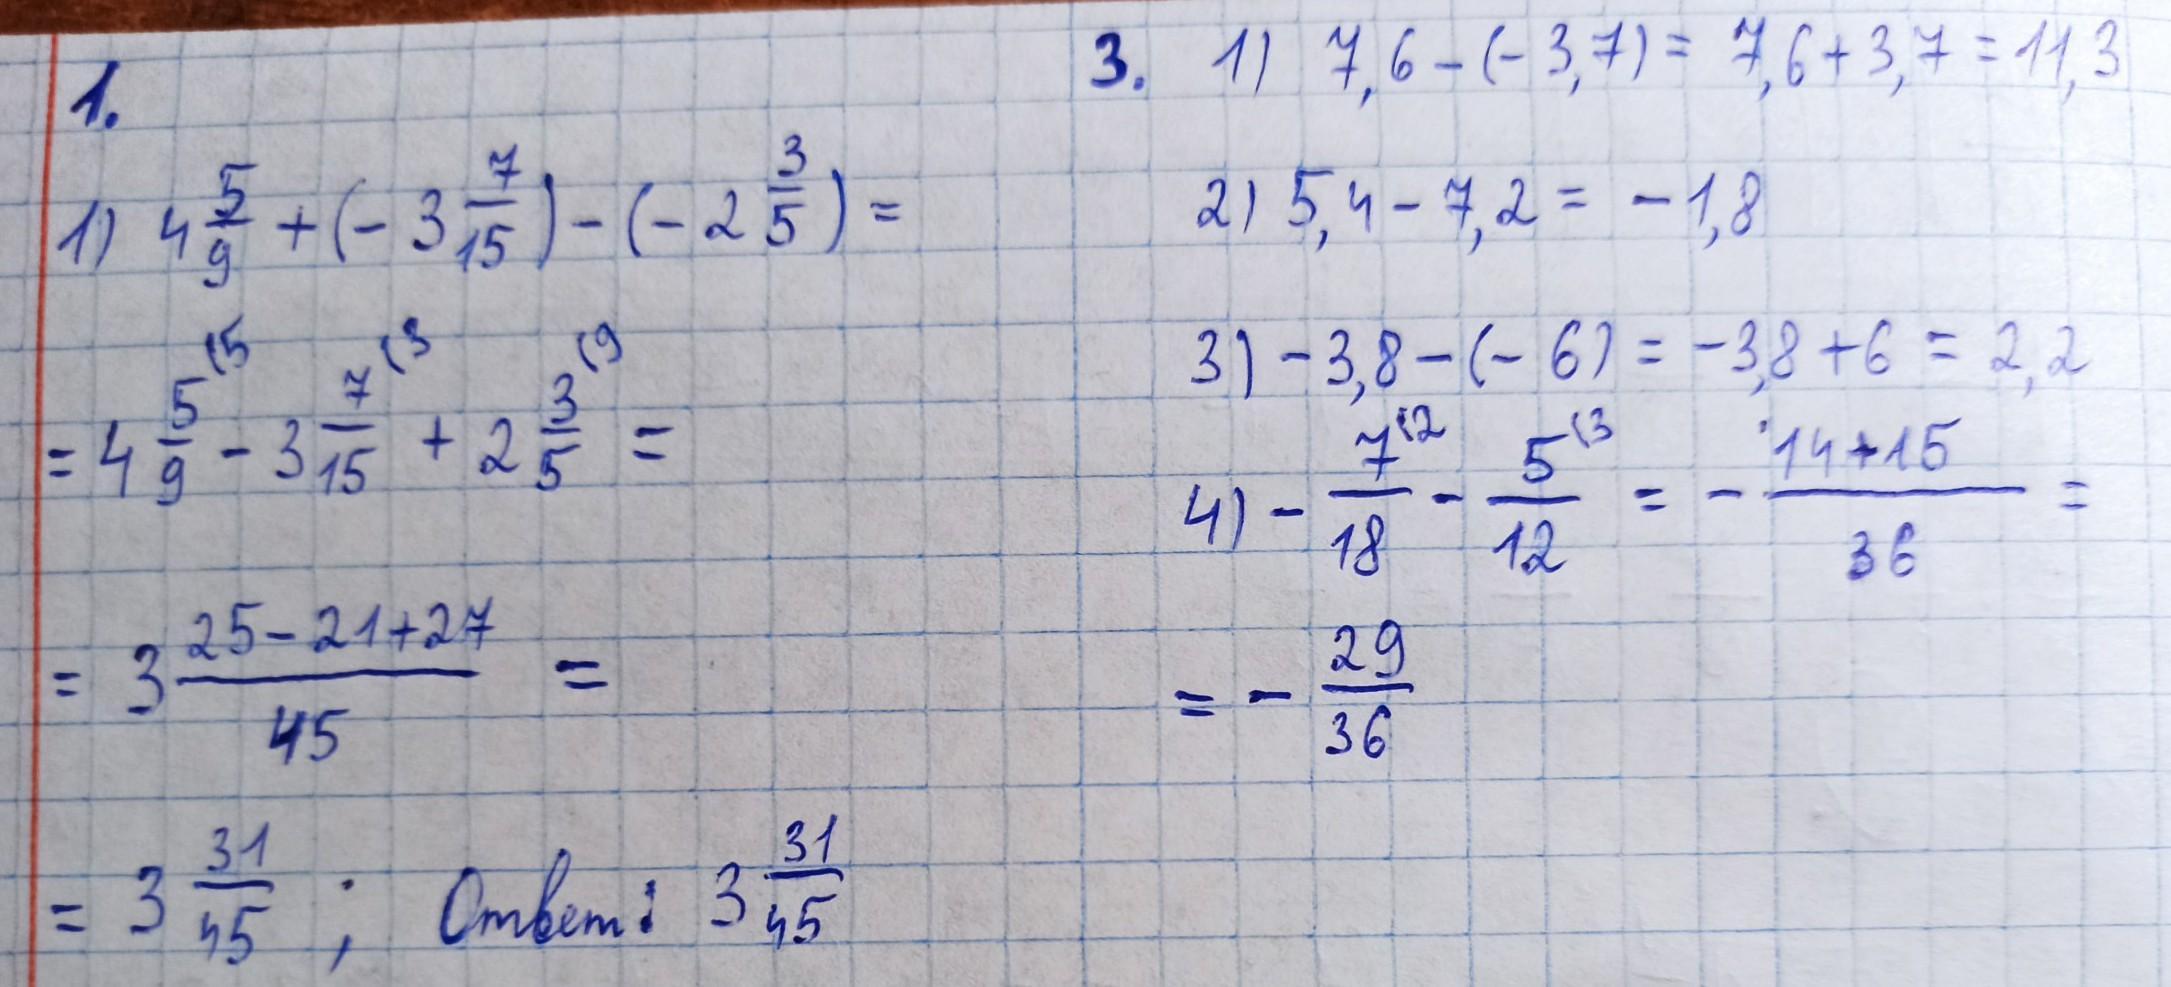 1.
1) 4 5/9 + (- 3 7/15) - (- 2 3/5) =
= 4 5/9 (5 - 3 7/15 (3 + 2 3/5 (9 =
= 3 25-21+27/45 =
= 3 31/45 ; Ответ: 3 31/45
3. 1) 7,6 - (- 3,7) = 7,6 + 3,7 = 11,3
2) 5,4 - 7,2 = - 1,8
3) - 3,8 - (- 6) = -3,8 + 6 = 2,2
4) - 7/18 (2 - 5/12 (3 = - 14+15/36 =
= - 29/36